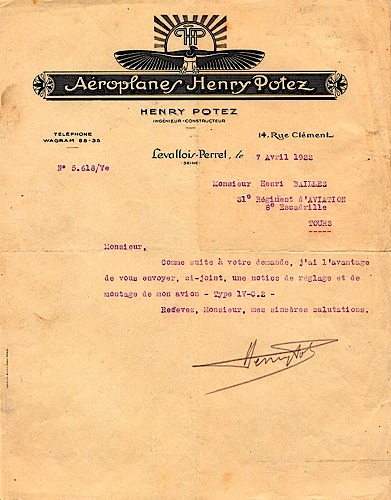 HP
Aéroplanes Henry Potez
HENRY POTEZ
INGÉNIEUR-CONSTRUCTEUR
TÉLÉPHONE
WAGRAM 88-35
14, Rue Clément
Levallois-Perret, le 7 Avril 1922
(SEINE)
N° 5.618/Ve
Monsieur Henri BAILLEZ
31° Régiment d'AVIATION
8° Escadrille
TOURS
Monsieur,
Comme suite à votre demande, j'ai l'avantage
de vous envoyer, ci-joint, une notice de réglage et de
montage de mon avion - Type IV-C.2 -
Recevez, Monsieur, mes sincères salutations.